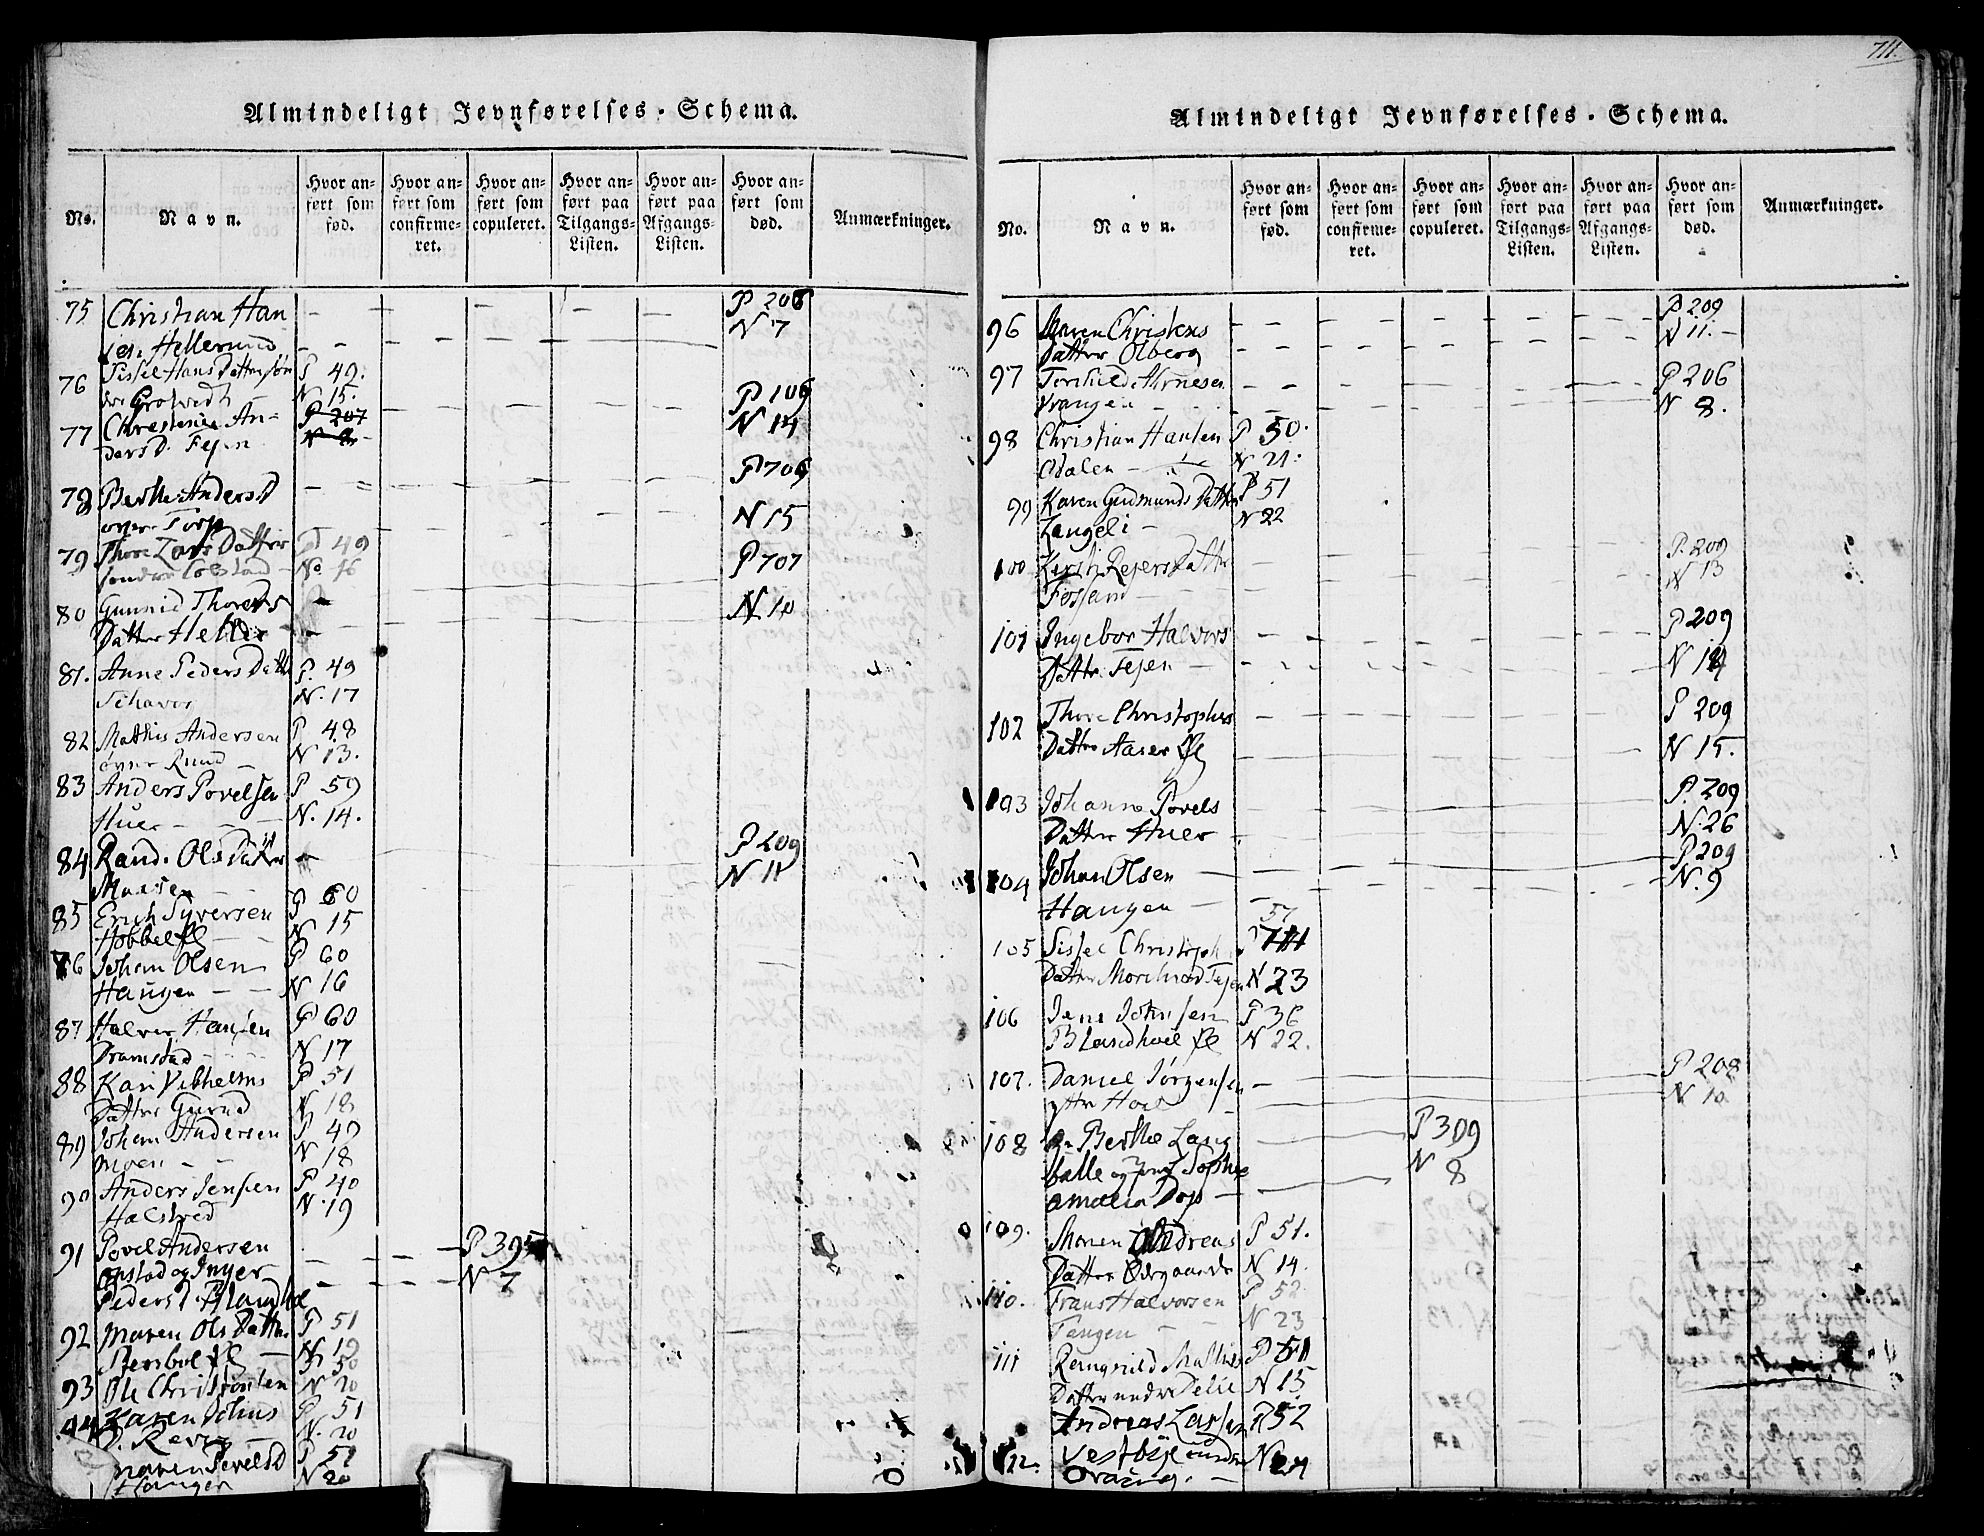 711.
Almindeligt Jevnførelses-Schema.
No. Navn. Hvor anført som fød. Hvor anført som confirmeret. Hvor anført som copuleret. Hvor anført paa Tilgangs-Listen. Hvor anført paa Afgangs-Listen. Hvor anført som død. Anmærkninger.
75 Christian Han P 208
sen Hellerud N 7
76 Sissel Hans Datter P 49.
N 15.
77 Christine An- P 207 P 106
ders D. Fejen N 8 N 14
78 Berthe Anders D P 706
over Torp N 15
79 Thore Lars Datter P 49 P 707
sondre No 16
80 Gunnild Thores N 10
Datter Heller
81. Anne Peders Datter P. 49
N. 17
82 Mathis Andersen P 48
øvre Ruud N 13.
83 Anders Povelsen P 59
Huer N. 14.
84 Rand. Ols Datter P 209
N 11
85 Erich Syversen P 60
Hobbel N 15
86 Johan Olsen P 60
Haugen N 16
87 Halvor Hansen P 60
Dramstad N 17
88 Kari Vilhelms P 51
Datter N 18
89 Johan Andersen P 49
Moen N 18
90 Anders Jensen P 40
N. 19
91 Povel Andersen P 395
og Inger N 7
Peders D.
92 Maren Ols Datter P 51
N 19
93 Ole Christensen P 50
N 20
94 Karen Johns P 51
D. Rever N. 20
Maren Povels D P 51
Haugen N 20
Almindeligt Jevnførelses-Schema.
No. Navn. Hvor anført som fød. Hvor anført som confirmeret. Hvor anført som copuleret. Hvor anført paa Tilgangs-Listen. Hvor anført paa Afgangs-Listen. Hvor anført som død. Anmærkninger.
96 Maren Christens P 209
Datter Olberg N 11.
97 Arnesen P 206
Vrangen N 8.
98 Christian Hansen P 50.
Odalen N 21.
99 Karen Gudmunds Datter P 51
Langeli N 22
100 Kirsti Rejers Datter P. 209
Fossum N 13
101 Ingebor Halvors P 209
Datter Fejen N 14
102 Thore Christophers P 209
Datter N 15.
103 Johanne Povels P. 209
Datter Huer N. 26
104 Johan Olsen P 209
Haugen N. 9
57
105 Sissel Christoph P
Datter N 23
106 Jens Johnsen P 36
N 22.
107. Daniel Jørgensen P 208
yttre Hoel N 10
108 Berthe Lang P 309
balle og Sophie N 8
Amalia Dop
109. Maren Andreas P 51.
Datter Ødegaarde N 14.
110. Frans Halvorsen P 52.
Tangen N 23
111 Ragnild Mathis P 51
Datter nedre Delie N 15
112. Andreas Larsen P 52
Vestbye under N 24